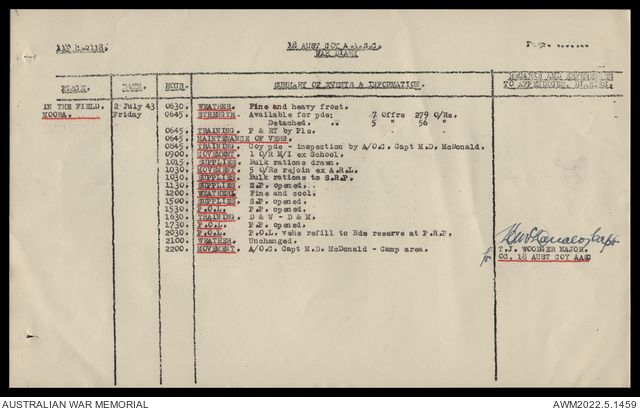 AAF C.2118.
18 AUST COY A.A.S.C.
WAR DIARY
PLACE. DATE. HOUR. SUMMARY OF EVENTS & INFORMATION. REMARKS AND REFERENCES
TO APPENDICES, D.I.S.C.
IN THE FIELD. 2 July 43 0630. WEATHER. Fine and heavy frost.
MOORA. Friday 0645. STRENGTH. Available for pde: 7 Offrs 279 O/Rs.
Detached. " 5 " 56 "
0645. TRAINING. P & RT by Pls.
0645. MAINTENANCE OF VEHS.
0845. TRAINING. Coy pde - inspection by A/O.C. Capt M.D. McDonald.
0900. MOVEMENT. 1 O/R M/I ex School.
1015. SUPPLIES. Bulk rations drawn.
1030. MOVEMENT. 5 O/Rs rejoin ex A.R.L.
1030. SUPPLIES. Bulk rations to S.R.P.
1130. SUPPLIES. S.P. opened.
1200. WEATHER. Fine and cool.
1500. SUPPLIES. S.P. opened.
1530. P.O.L. P.P. opened.
1630. TRAINING. D & W - D & M.
1730. P.O.L. P.P. opened.
2030. P.O.L. P.O.L. vehs refill to Bde reserve at P.R.P.
2100. WEATHER. Unchanged.
2200. MOVEMENT. A/O.C. Capt M.D. McDonald - Camp area.
Capt
for T.J. WOODGER MAJOR.
OC, 18 AUST COY AASC
AUSTRALIAN WAR MEMORIAL AWM2022.5.1459